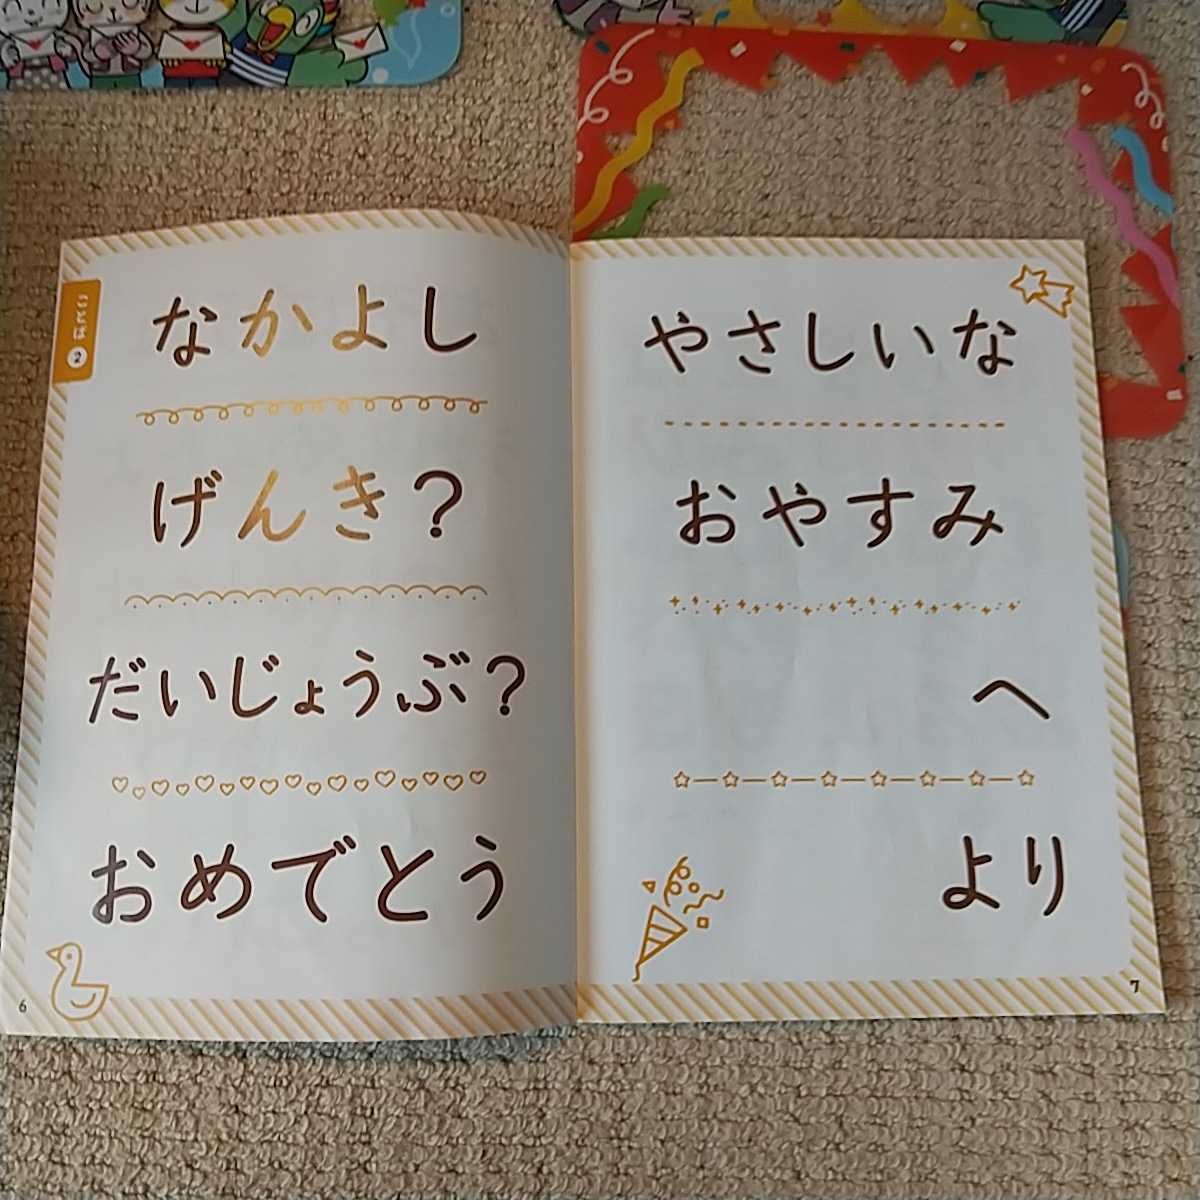 ことば2
なかよし
げんき？
だいじょうぶ？
おめでとう
6
やさしいな
おやすみ
へ
より
7